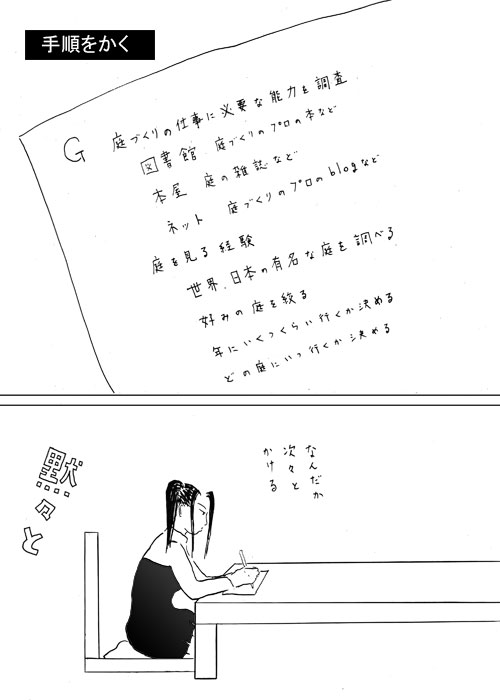 手順をかく
G 庭づくりの仕事に必要な能力を調査
図書館 庭づくりのプロの本など
本屋 庭の雑誌など
ネット 庭づくりのプロのblogなど
庭を見る経験
世界、日本の有名な庭を調べる
好みの庭を絞る
年にいくつくらい行くか決める
どの庭にいつ行くか決める
なんだか
次々と
かける
黙々と